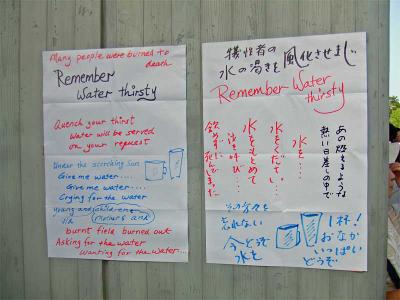 Many people were burned to
death
Remember
Water thirsty
Quench your thirst
Water will be served
on your request
Under the scorching Sun
Give me water....
Give me water....
Crying for the water
young and children
old mothers and
burnt field burned out
Asking for the water
Wanting for the water...
犠牲者の
水の渇きを風化させまじ
Remember Water
thirsty
あの燃えるような
熱い日差しの中で
水を…
水をください…
水をもとめて
飲めず死んでいった
忘れない
今どうぞ
水を
1杯!
おなか
いっぱい
どうぞ